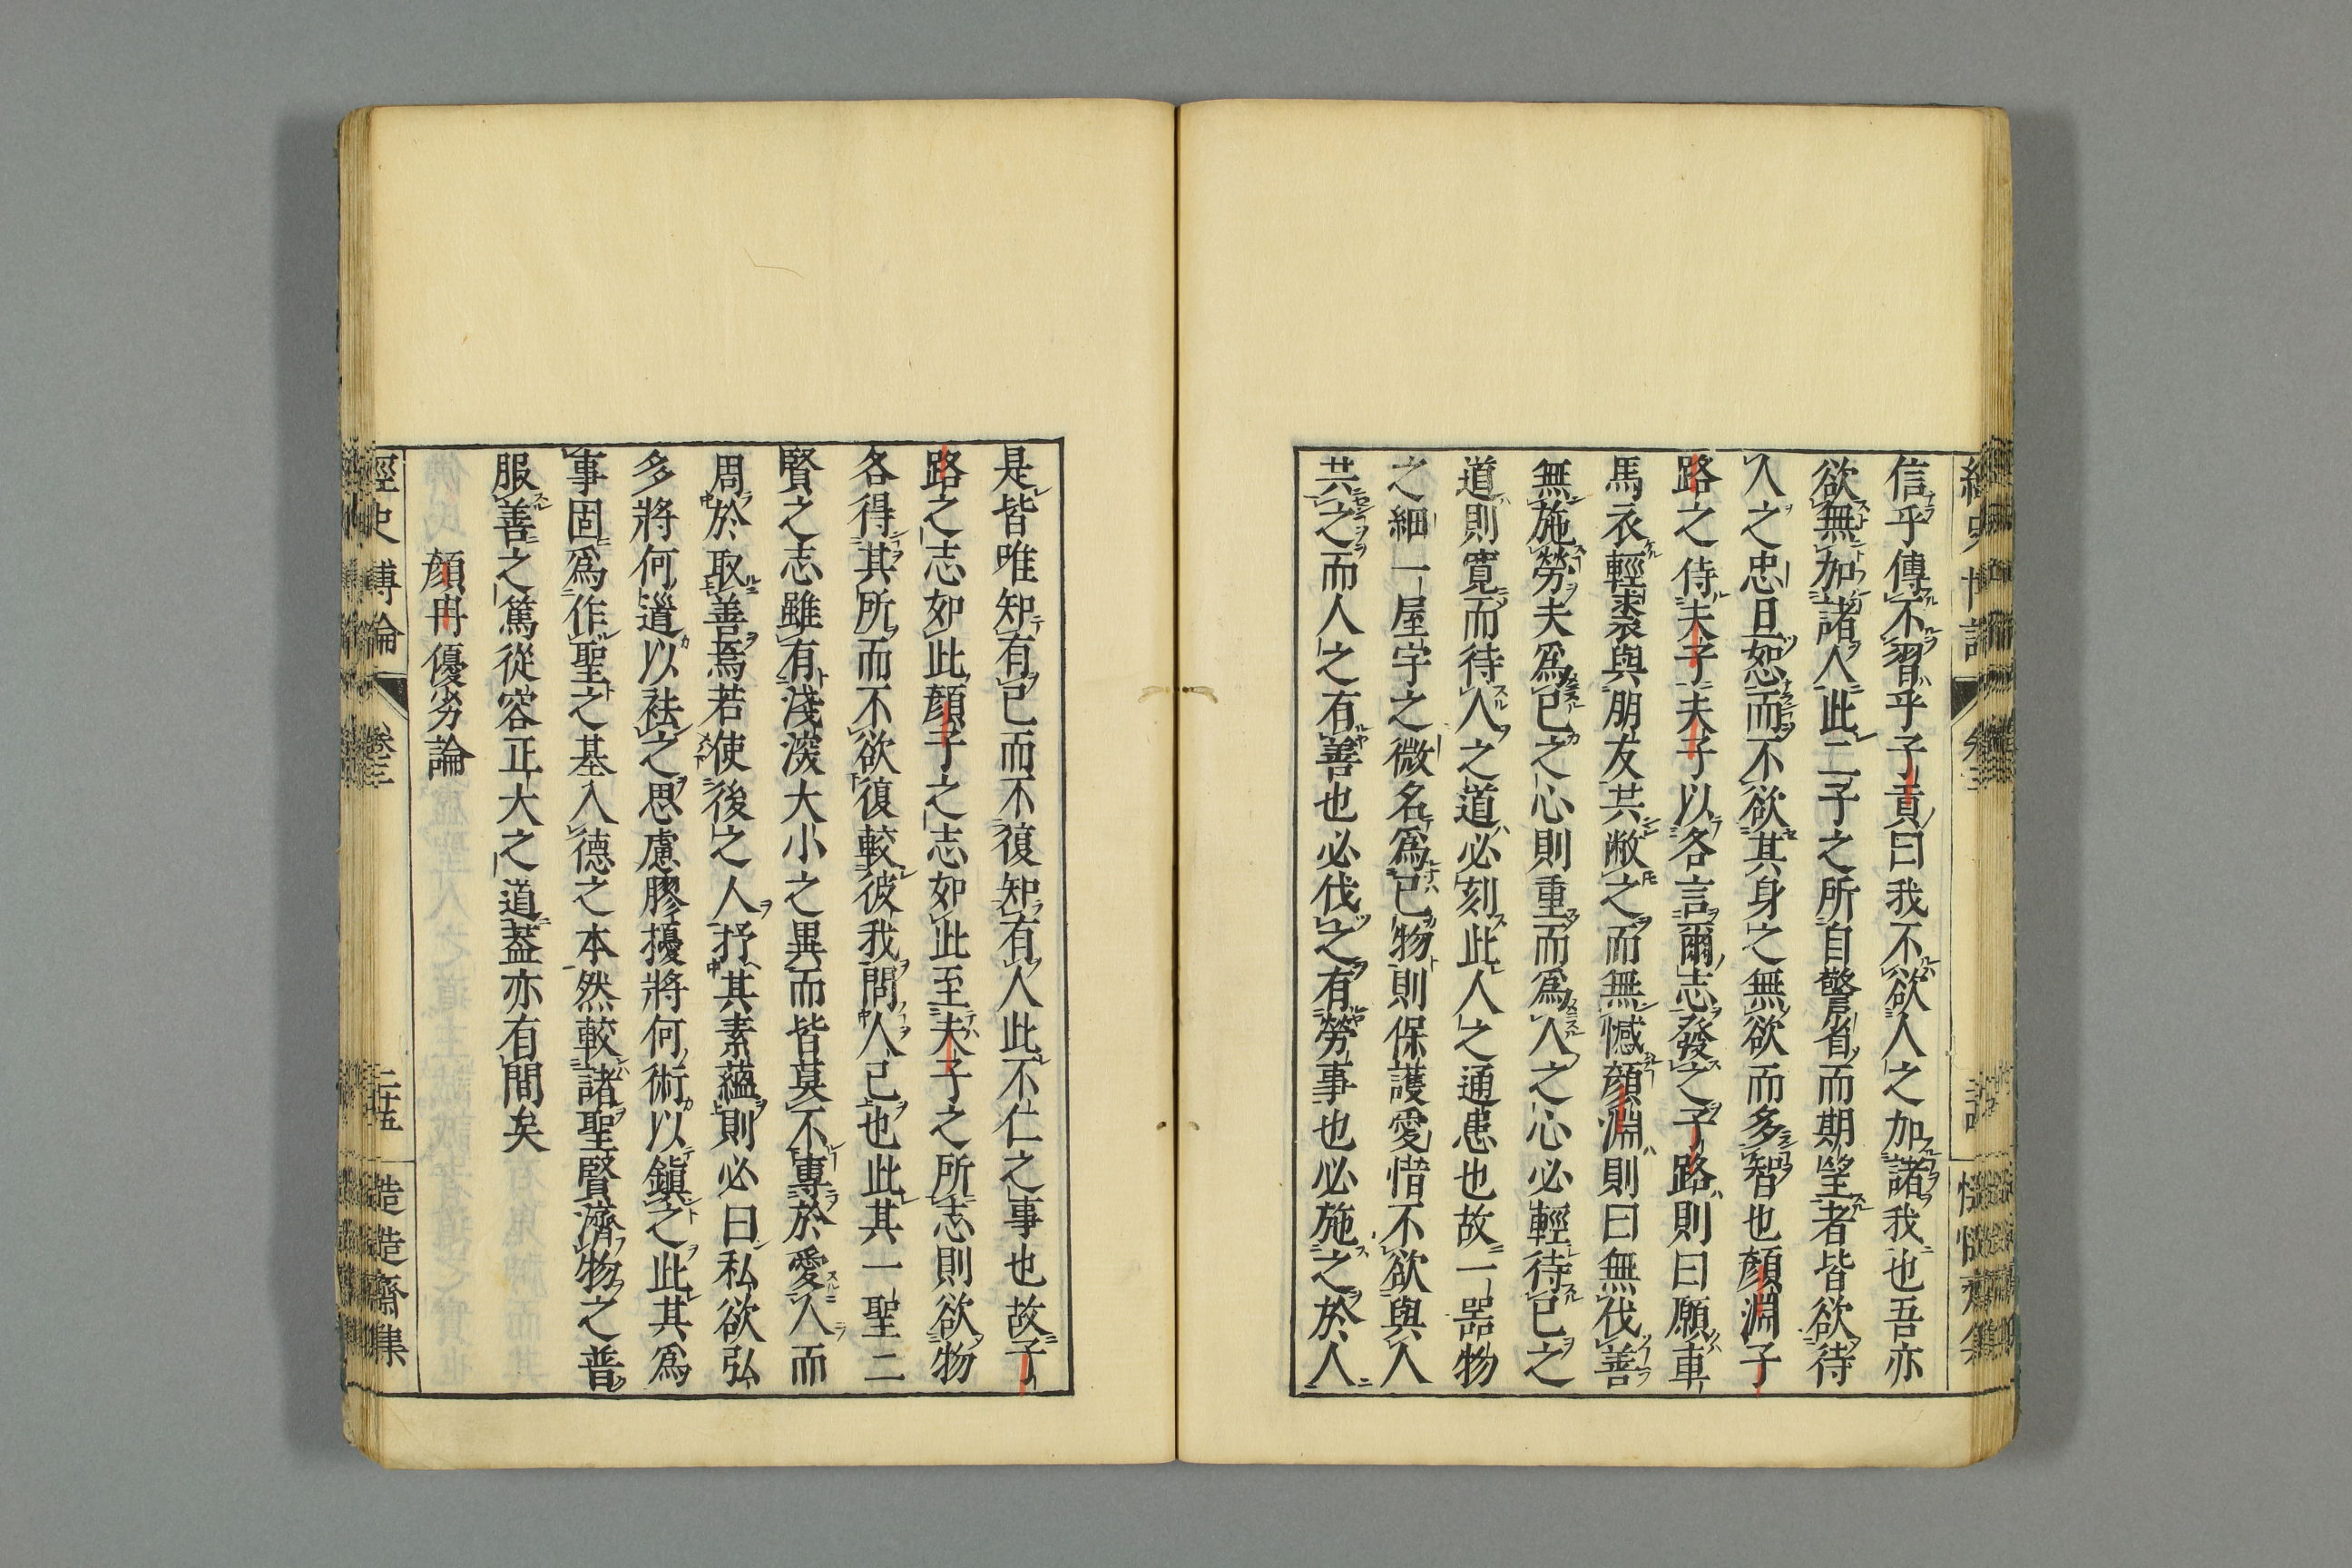 信乎傳不習乎子貢曰我不欲人之加諸我也吾亦
欲無加諸人此二子之所自警省而期望者皆欲待
人之忠且恕而不欲其身之無欲而多智也顏淵子
路之侍夫子夫子以各言爾志發之子路則曰願車
馬衣輕裘與朋友共敝之而無憾顏淵則曰無伐善
無施勞夫爲己之心則重而爲人之心必輕待己之
道則寬而待人之道必刻此人之通患也故一器物
之細一屋宇之微名爲己物則保護愛惜不欲與人
共之而人之有善也必伐之有勞事也必施之於人
是皆唯知有己而不復知有人此不仁之事也故子
路之志如此顏子之志如此至夫子之所志則欲物
各得其所而不欲復較彼我問人己也此其一聖二
賢之志雖有淺深大小之異而皆莫不專於愛人而
周於取善焉若使後之人抒其素蘊則必曰私欲弘
多將何道以袪之思慮膠擾將何術以鎭之此其爲
事固爲作聖之基入德之本然較諸聖賢濟物之普
服善之篤從容正大之道蓋亦有間矣
顏冉優劣論
經史博論
卷三
二十五
慥慥齋集